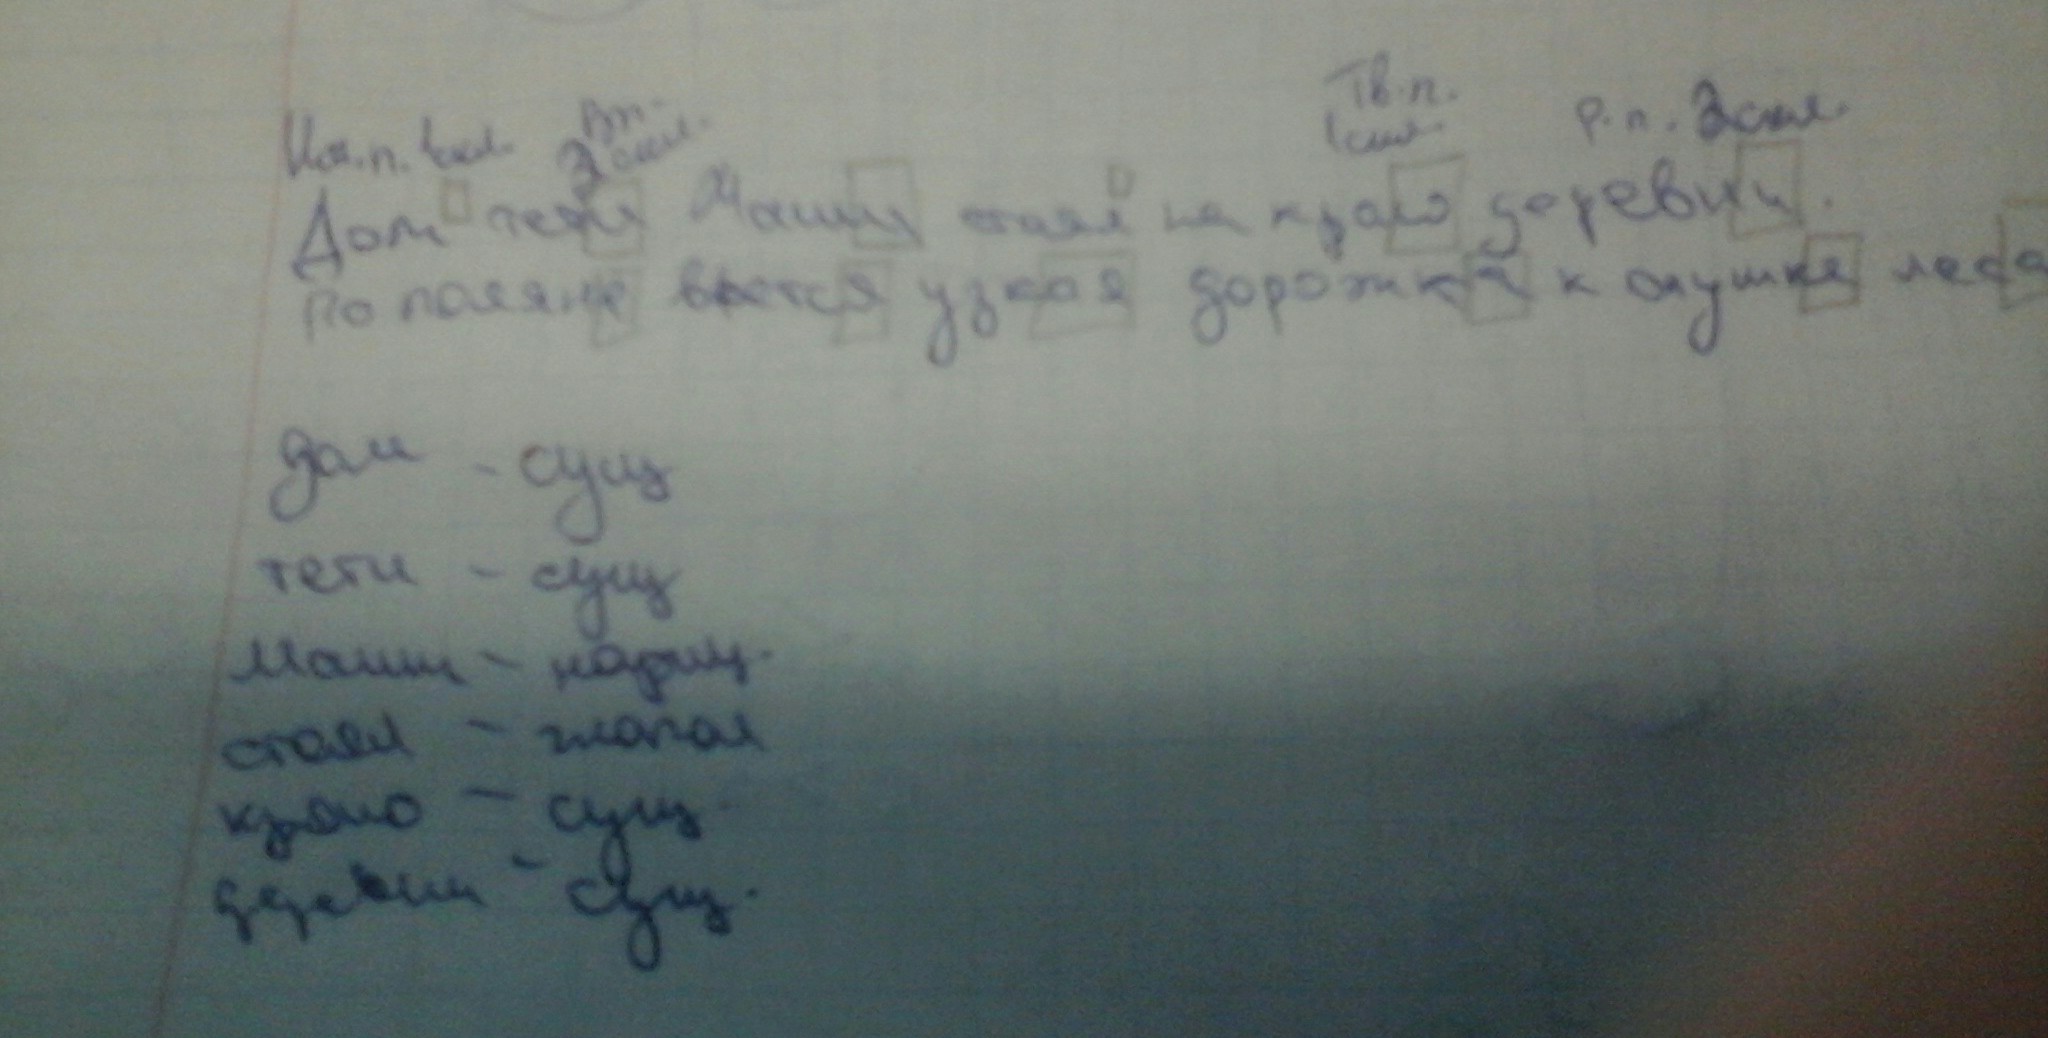 Им.п. 1скл. Вп. 2скл. Тв.п. 1скл. р.п. 2скл.
Дом тети Маши стоял на краю деревни.
По поляне вьется узкая дорожка к опушке леса
дом - сущ
тети - сущ
Маши - нарищ.
стоял - глагол
краю - сущ.
деревни - сущ.